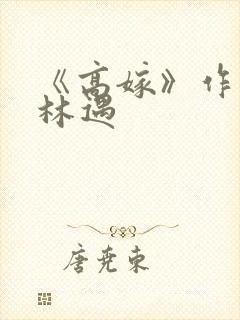 《高嫁》作
林遇
唐尧东